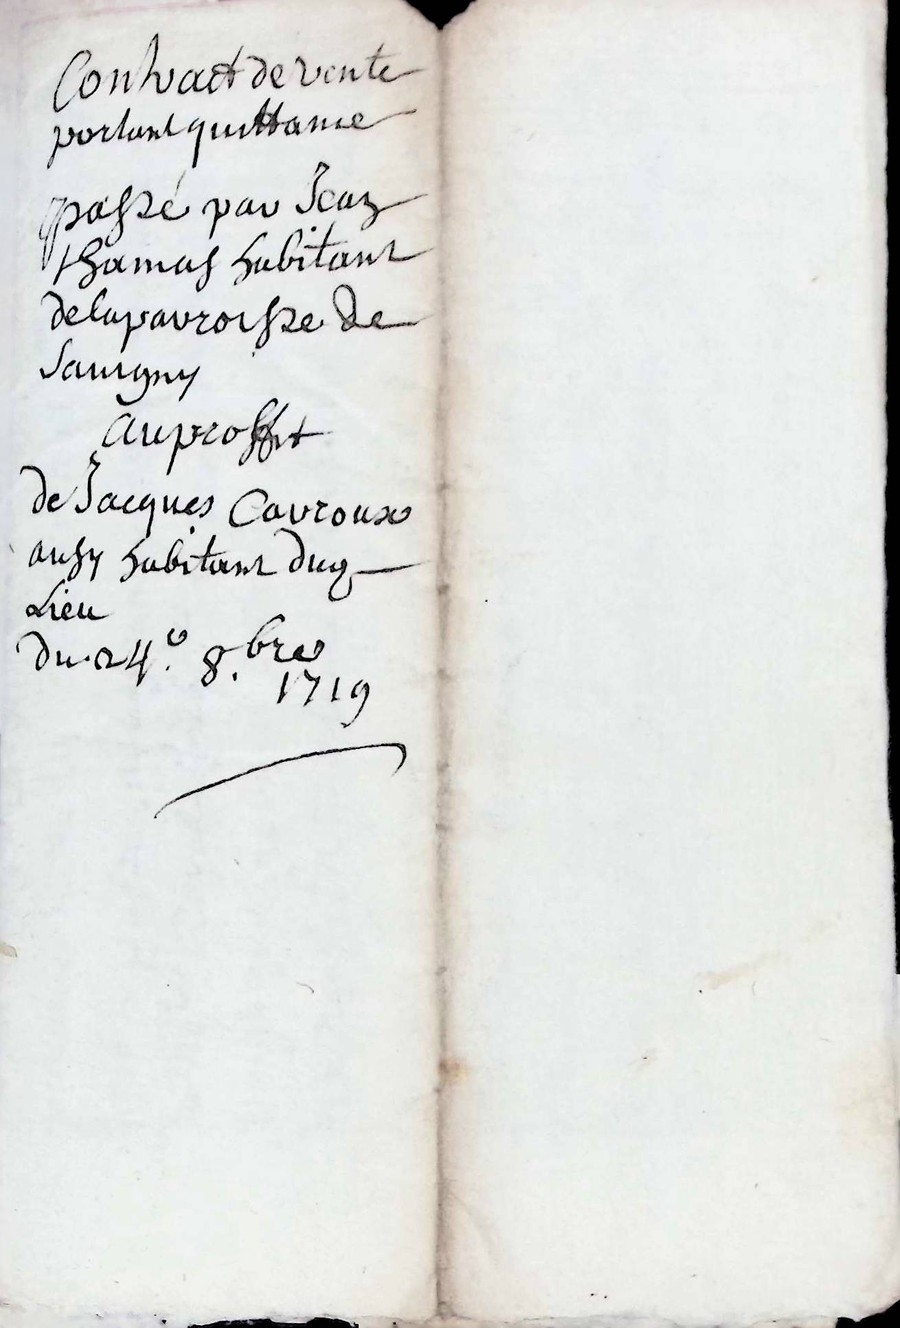 Contract de vente
portant quittance
passé par Jean
thomas habitant
de la parroisse de
Savigny
au proffit
de Jacques Carroux
aussy habitant dud
Lieu
du 24e. 8.bre
1719